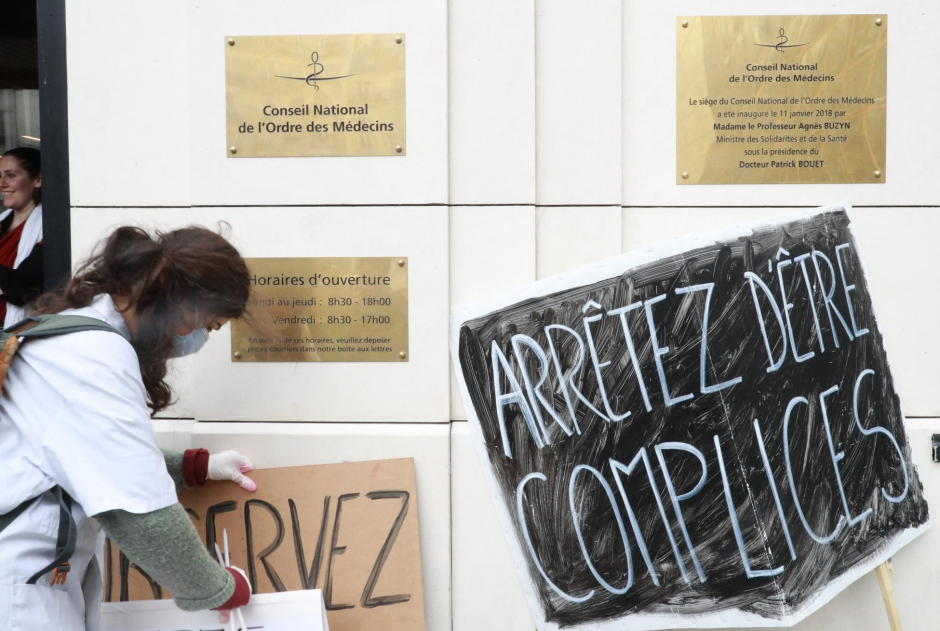 Conseil National
de l'Ordre des Médecins
Conseil National
de l'Ordre des Médecins
Le siège du Conseil National de l'Ordre des Médecins
a été inauguré le 11 janvier 2018 par
Madame le Professeur Agnès BUZYN
Ministre des Solidarités et de la Santé
sous la présidence du
Docteur Patrick BOUET
Horaires d'ouverture
di au jeudi : 8h30 - 18h00
Vendredi : 8h30 - 17h00
de ces horaires, veuillez déposer
courriers dans notre boite aux lettres
ARRÊTEZ D'ÊTRE
COMPLICES
SERVEZ